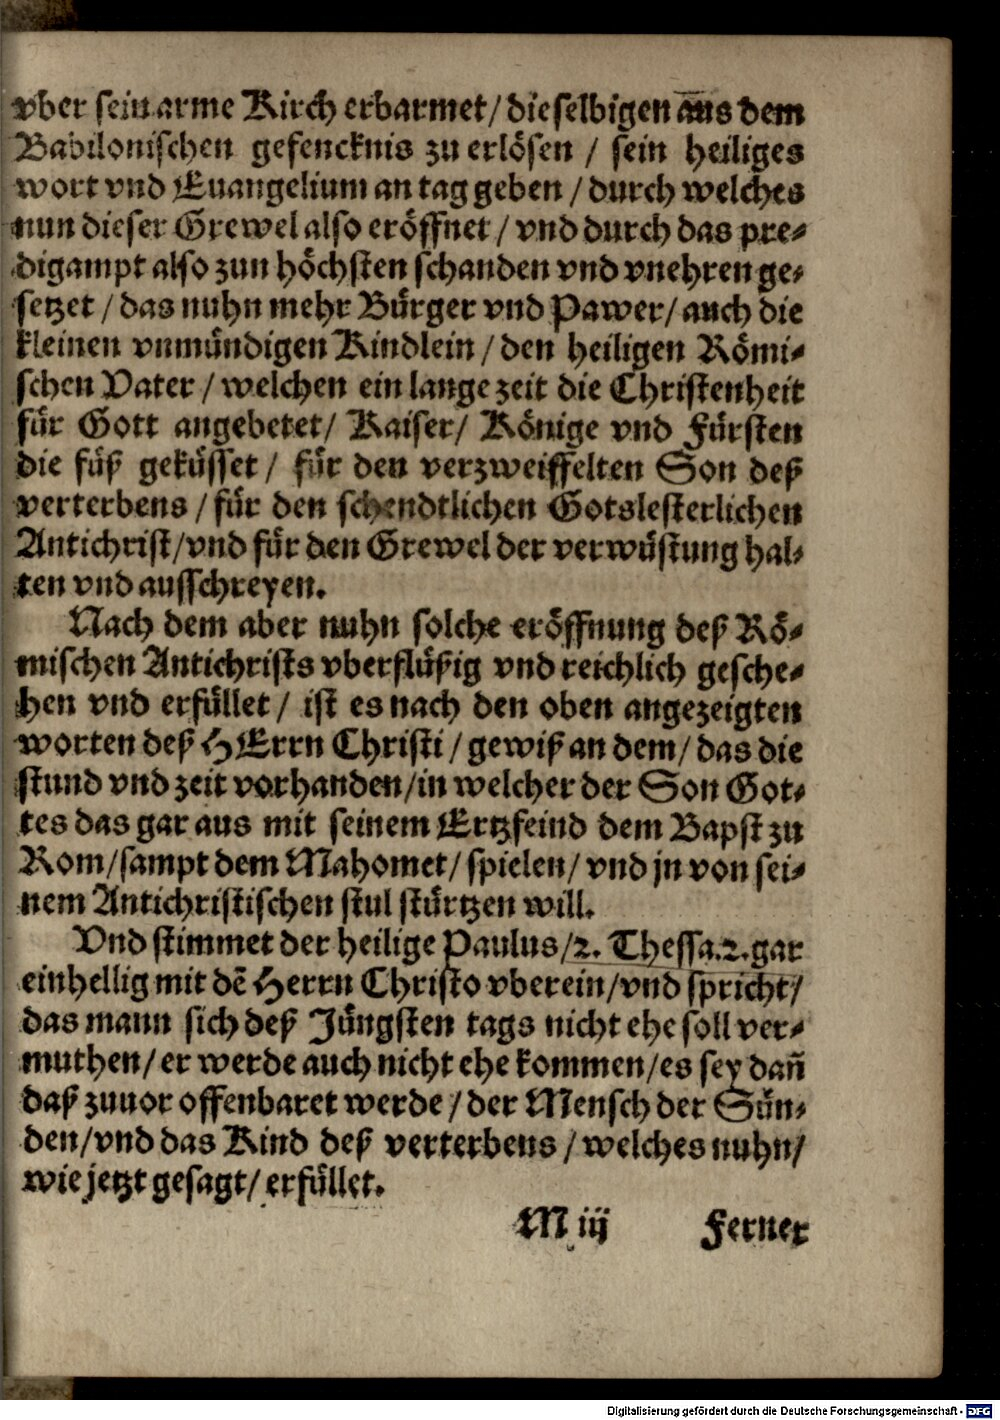 vber sein arme Kirch erbarmet/ dieselbigen aus dem
Babilonischen gefencknis zu erlösen / sein heiliges
wort vnd Euangelium an tag geben / durch welches
nun dieser Grewel also eröffnet / vnd durch das pre⸗
digampt also zun höchsten schanden vnd vnehren ge⸗
setzet / das nuhn mehr Bürger vnd Pawer/ auch die
kleinen vnmündigen Kindlein / den heiligen Römi⸗
schen Vater / welchen ein lange zeit die Christenheit
für Gott angebetet/ Kaiser/ Könige vnd Fürsten
die füß geküsset / für den verzweiffelten Son deß
verterbens / für den schendtlichen Gotslesterlichen
Antichrist/vnd für den Grewel der verwüstung hal⸗
ten vnd ausschreyen.
Nach dem aber nuhn solche eröffnung deß Rö⸗
mischen Antichrists vberflüßig vnd reichlich gesche⸗
hen vnd erfüllet / ist es nach den oben angezeigten
worten deß HErrn Christi / gewiß an dem/ das die
stund vnd zeit vorhanden/in welcher der Son Got⸗
tes das gar aus mit seinem Ertzfeind dem Bapst zu
Rom/sampt dem Mahomet/ spielen/ vnd jn von sei⸗
nem Antichristischen stul stürtzen will.
Vnd stimmet der heilige Paulus/2. Thessa.2.gar
einhellig mit dē Herrn Christo vberein/vnd spricht/
das mann sich deß Jüngsten tags nicht ehe soll ver⸗
muthen/ er werde auch nicht ehe kommen/es sey dañ
daß zuuor offenbaret werde / der Mensch der Sün⸗
den/vnd das Kind deß verterbens / welches nuhn/
wie jetzt gesagt/ erfüllet.
M iij Ferner
Digitalisierung gefördert durch die Deutsche Forschungsgemeinschaft - DFG